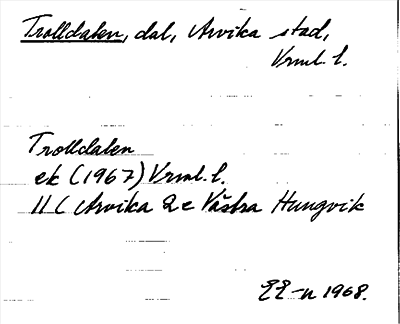 Trolldalen, dal, Arvika stad,
Vrml. l.
Trolldalen
ek (1967) Vrml. l.
11 C Arvika 2 e Västra Hungvik
1968.